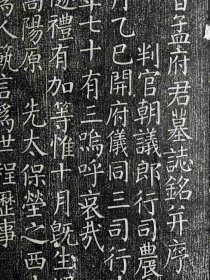 孟府君墓誌銘并序
判官朝議郎行司農
月乙巳開府儀同三司行
年七十有三嗚呼哀哉
禮有加等惟十月旣生
高陽原 先太保塋之西
人範言爲世程歷事